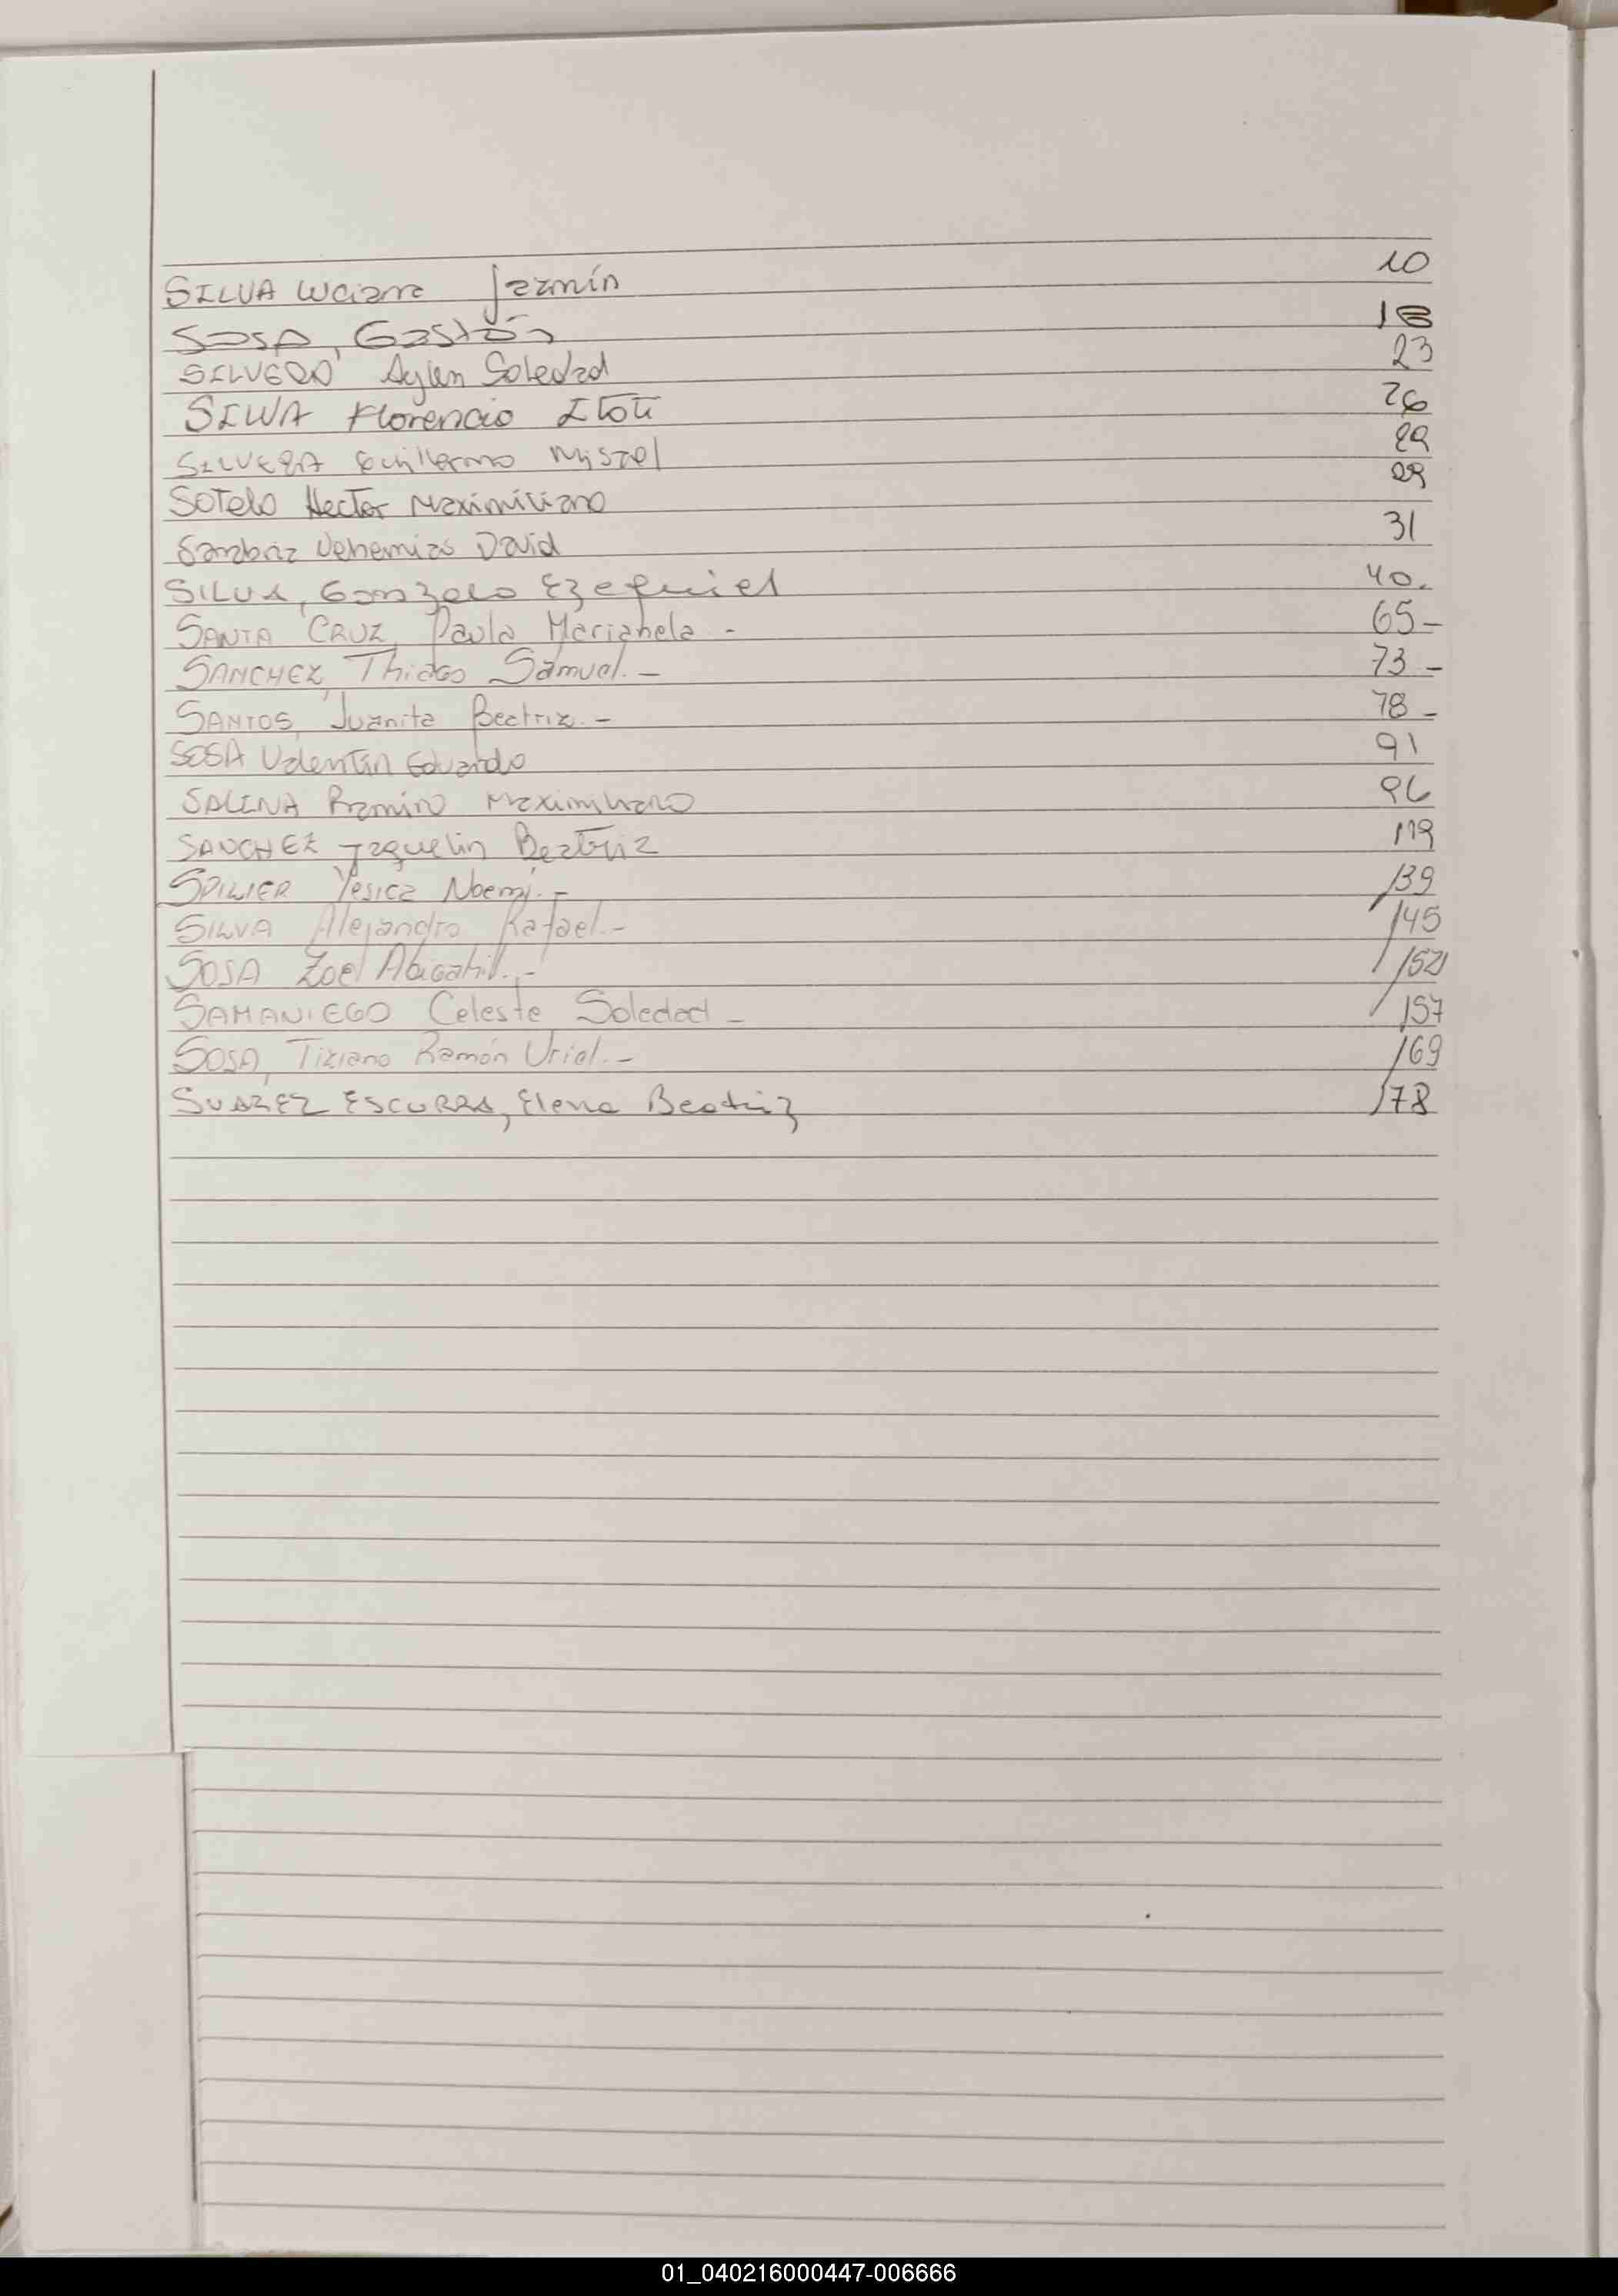 SILVA Luciana Jazmín 10
SOSA, Gastón 18
SILVERO Aylen Soledad 23
SILVA Florencio Itatí 26
SILVERA Guillermo Misael 29
Sotelo Hector Maximiliano 29
Sanabria Nehemias David 31
SILVA, Gonzalo Ezequiel 40.
SANTA CRUZ, Paula Marianela - 65-
SANCHEZ, Thiago Samuel.- 73-
SANTOS, Juanita Beatriz.- 78-
SOSA Valentín Eduardo 91
SALINA Ramiro Maximiliano 96
SANCHEZ Jaquelin Beatriz 119
Yesica Noemí.- 139
SILVA Alejandro Rafael.- 145
SOSA Zoe Abigahil.- 152
SAMANIEGO Celeste Soledad - 157
SOSA, Tiziano Ramón Uriel.- 169
SUAREZ ESCURRA, Elena Beatriz 178
01_040216000447-006666